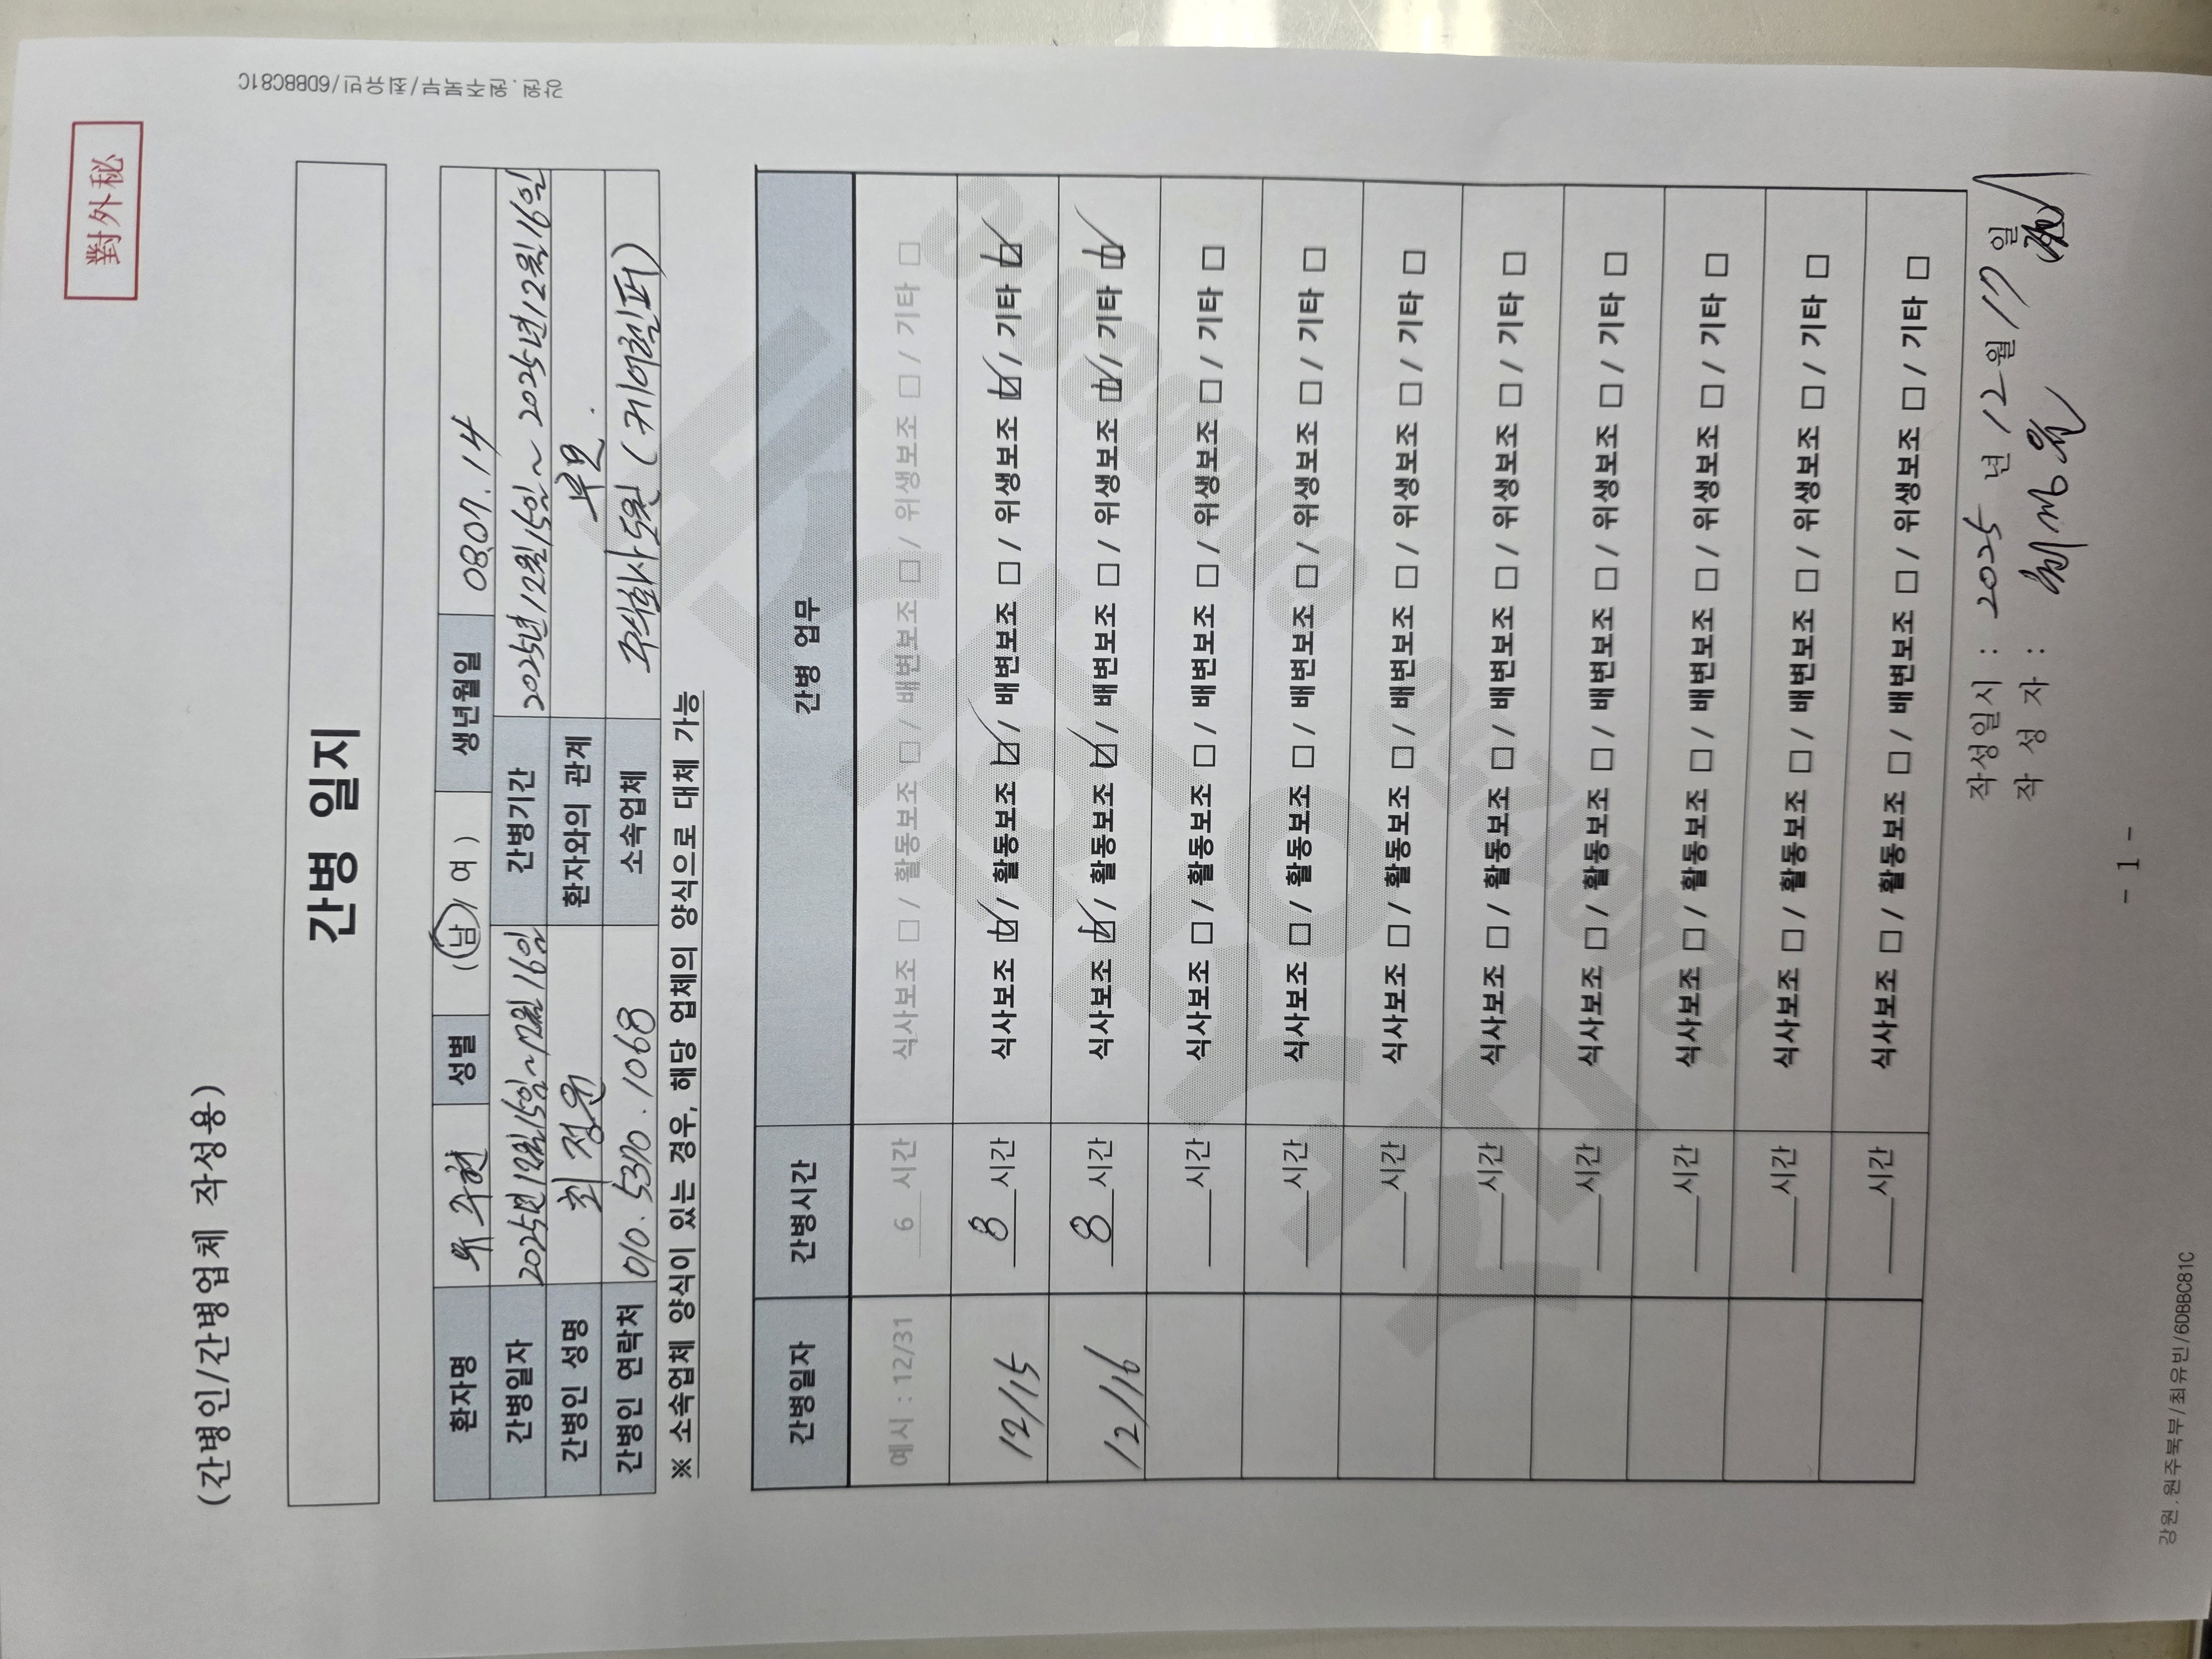 강원.원주북부/최유빈/6DBBC81C
對外秘
(간병인/간병업체 작성용)
간병 일지
환자명 유주헌 성별 (남/여) 생년월일 080714
간병일자 2025년12월15일~12월16일 간병기간 2025년12월15일~2025년12월16일
간병인 성명 최정원 환자와의 관계 부모.
간병인 연락처 010.5370.1068 소속업체 주식회사 도원 (케어헬퍼)
※ 소속업체 양식이 있는 경우, 해당 업체의 양식으로 대체 가능
간병일자 간병시간 간병 업무
예시 : 12/31 6 시간 식사보조 □ / 활동보조 □ / 배변보조 □ / 위생보조 □ / 기타 □
12/15 8 시간 식사보조 ☑ / 활동보조 ☑ / 배변보조 □ / 위생보조 ☑ / 기타 ☑
12/16 8 시간 식사보조 ☑ / 활동보조 ☑ / 배변보조 □ / 위생보조 ☑ / 기타 ☑
___시간 식사보조 □ / 활동보조 □ / 배변보조 □ / 위생보조 □ / 기타 □
___시간 식사보조 □ / 활동보조 □ / 배변보조 □ / 위생보조 □ / 기타 □
___시간 식사보조 □ / 활동보조 □ / 배변보조 □ / 위생보조 □ / 기타 □
___시간 식사보조 □ / 활동보조 □ / 배변보조 □ / 위생보조 □ / 기타 □
___시간 식사보조 □ / 활동보조 □ / 배변보조 □ / 위생보조 □ / 기타 □
___시간 식사보조 □ / 활동보조 □ / 배변보조 □ / 위생보조 □ / 기타 □
___시간 식사보조 □ / 활동보조 □ / 배변보조 □ / 위생보조 □ / 기타 □
___시간 식사보조 □ / 활동보조 □ / 배변보조 □ / 위생보조 □ / 기타 □
작성일시 : 2025 년 12 월 17 일
작 성 자 : 최정원
- 1 -
강원.원주북부/최유빈/6DBBC81C